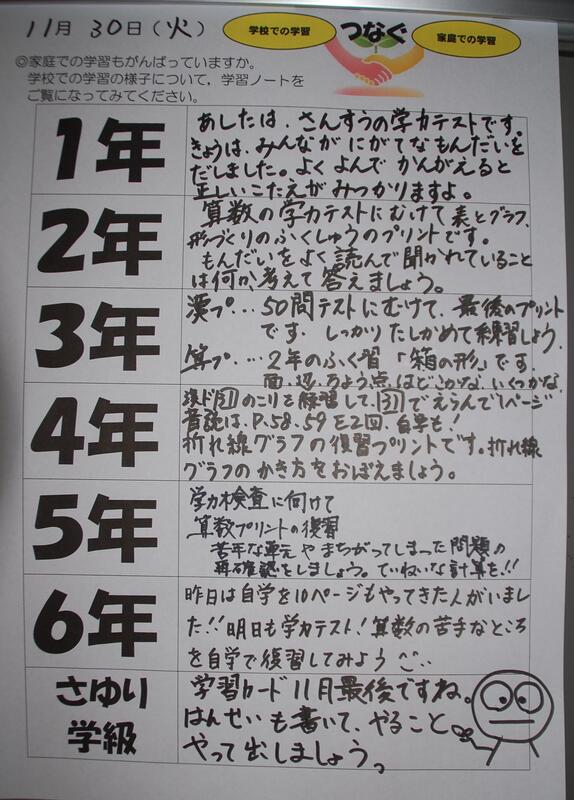 11月 30日(火)
学校での学習
つなぐ
家庭での学習
◎家庭での学習もがんばっていますか。
学校での学習の様子について、学習ノートを
ご覧になってみてください。
1年
あしたは、さんすうの学力テストです。
きょうは、みんなが にがてな もんだいを
だしました。よく よんで かんがえると
正しいこたえが みつかりますよ。
2年
算数の学力テストにむけて 表とグラフ、
形づくりのふくしゅうのプリントです。
もんだいをよく読んで聞かれていること
は何か考えて答えましょう。
3年
漢プ…50問テストにむけて、最後のプリント
です。しっかりたしかめて練習しよう。
算プ…2年のふく習「箱の形」です。
面、辺、ちょう点はどこかな、いくつかな。
4年
漢ド31のこりを練習して、31でえらんで1ページ
音読は、P.58.59を2回、自学も!
折れ線グラフの復習プリントです。折れ線
グラフのかき方をおぼえましょう。
5年
学力検査に向けて
算数プリントの復習
苦手な単元やまちがってしまった問題の
再確認をしましょう。ていねいな計算を!!
6年
昨日は自学を10ページもやってきた人がいまし
た!!明日も学力テスト!算数の苦手なところ
を自学で復習してみよう
さゆり
学級
学習カード11月最後ですね。
はんせいも書いて、やること
やって出しましょう。